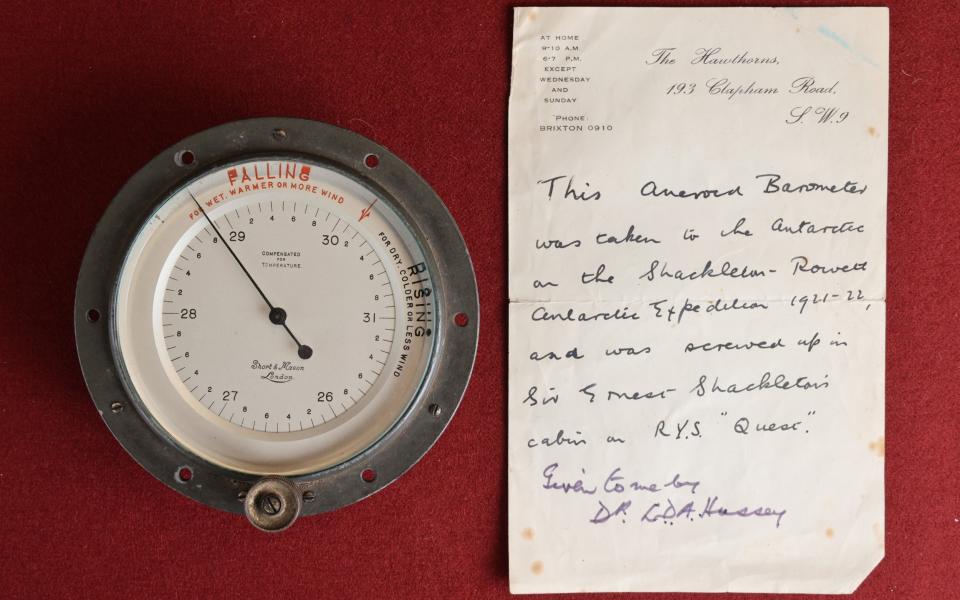 FALLING
FOR WET, WARMER OR MORE WIND
RISING
FOR DRY, COLDER OR LESS WIND
29
30
31
26
27
28
COMPENSATED
FOR
TEMPERATURE.
Short & Mason
London
AT HOME
9-10 A.M.
6-7 P.M.
EXCEPT
WEDNESDAY
AND
SUNDAY
'PHONE:
BRIXTON 0910
The Hawthorns,
193 Clapham Road,
S.W.9
This Aneroid Barometer
was taken to the Antarctic
on the Shackleton-Rowett
Antarctic Expedition 1921-22,
and was screwed up in
Sir Ernest Shackleton's
cabin on R.Y.S. "Quest."
Given to me by
DR. L.D.A. Hussey